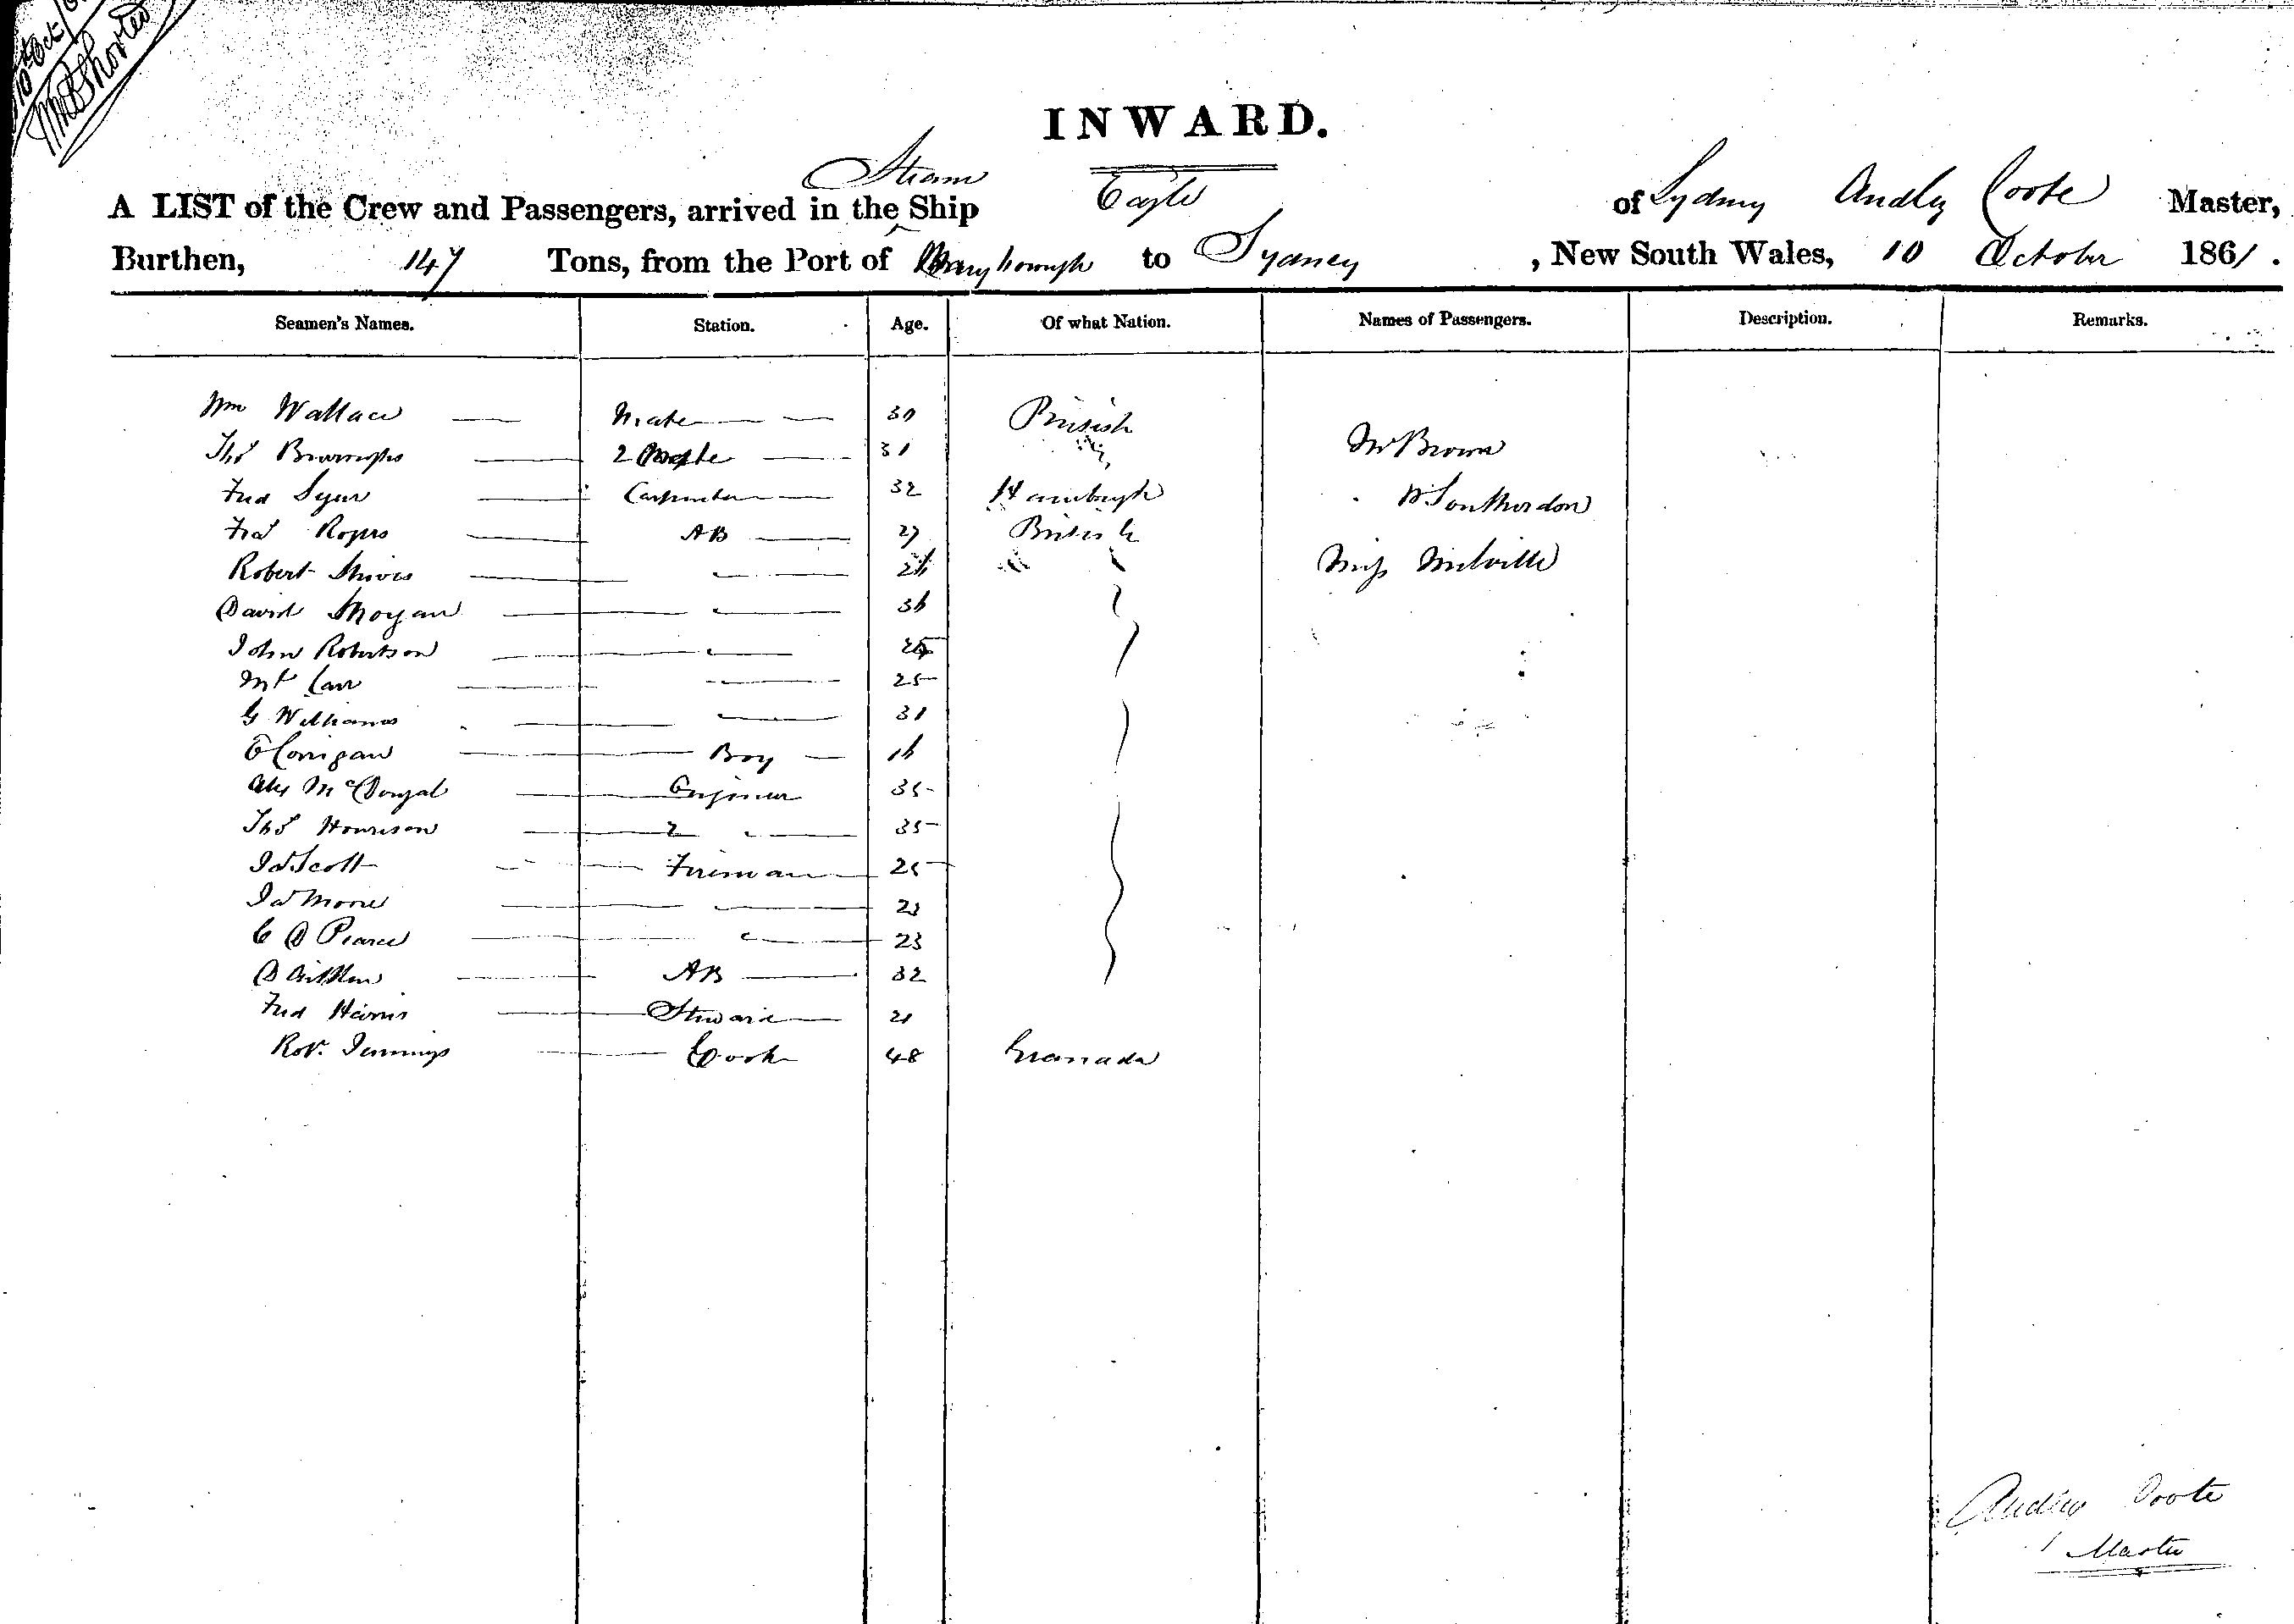 10th Oct/61
INWARD.
Steam
A LIST of the Crew and Passengers, arrived in the Ship Eagle of Sydney Audley Coote Master,
Burthen, 147 Tons, from the Port of Maryborough to Sydney, New South Wales, 10 October 1861.
Seamen's Names. Station. Age. Of what Nation. Names of Passengers. Description. Remarks.
Wm Wallace — Mate — 30 British
Thos Burroughs — 2 Mate — 31 Mr Brown
Fred — Carpenter — 32 Hamburgh
" Southerdon
Fras Rogers — AB — 27 British
Robert — " — Miss Melville
David — " — 36
John Robertson — " —
Carr — " — 25
G Williams — " — 31
E Corrigan — Boy — 16
Alex McDougal — Engineer 35
Thos Hourison — 2 " — 35
Jas Scott — Fireman — 25
Jas Moore — " — 21
C D Pearce — " — 23
D Aitken — AB — 32
Fred Harris — Steward — 21
Rot. Jennings — Cook 48 Granada
Audley Coote
Master